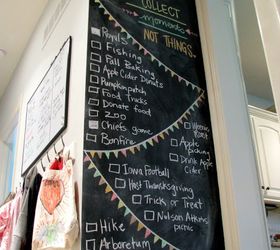 COLLECT
moments
NOT THINGS.
Royals
Fishing
Fall Baking
Apple Cider Donuts
Pumpkin patch
Food Trucks
Donate food
Zoo
Chiefs game
Bonfire
Weenie
Roast
Apple
picking
Drink Apple
Cider
Iowa Football
Host Thanksgiving
Trick or Treat
Nelson Atkins
picnic
Hike
Arboretum